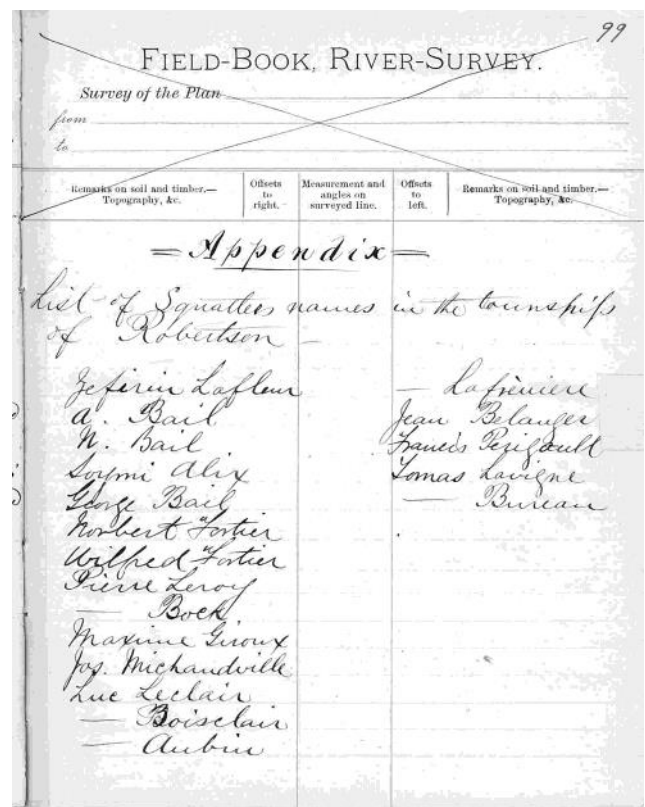 99
FIELD-BOOK, RIVER-SURVEY.
Survey of the Plan
from
to
Remarks on soil and timber.—
Topography, &c.
Offsets
to
right.
Measurement and
angles on
surveyed line.
Offsets
to
left.
Remarks on soil and timber.—
Topography, &c.
= Appendix =
List of Squatters names in the townships
of Robertson —
Zefirin Lafleur
A. Bail
N. Bail
Alix
George Bail
Norbert Fortier
Wilfred Fortier
Pierre Leroy
— Bock
Maxime Giroux
Jos. Michaudville
Luc Leclair
— Boisclair
— Aubin
— Lafrèniere
Jean Belanger
Francis Perigault
Tomas Lavigne
— Bureau